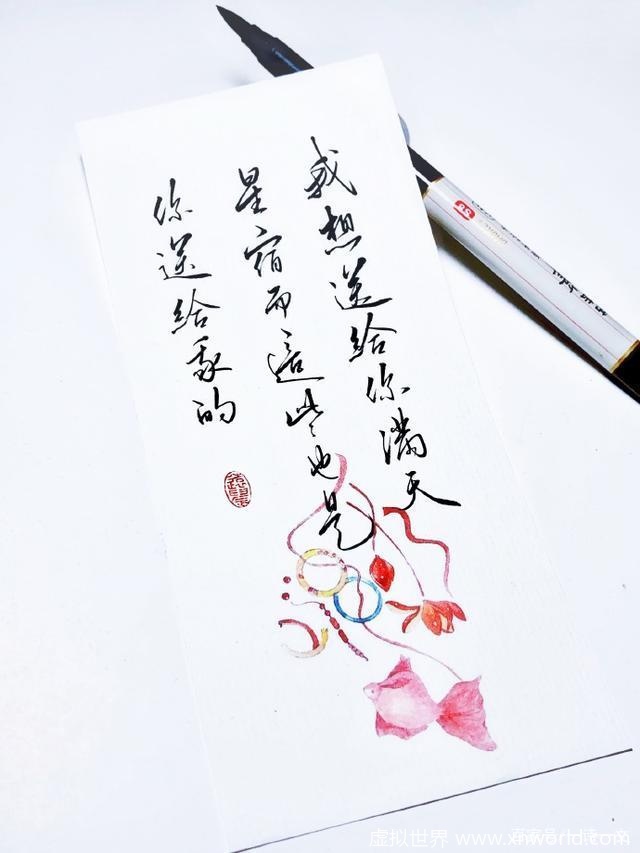 我想送给你满天
星宿而這些也是
你送给我的
虚拟世界 www.xnworld.com